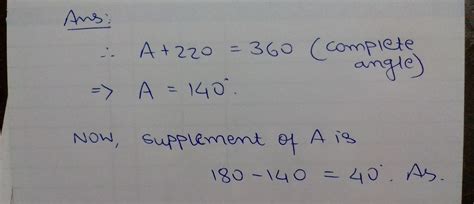 Ans:
∴ A + 220 = 360 (complete angle)
=> A = 140°.
NOW, supplement of A is
180 - 140 = 40°. As.